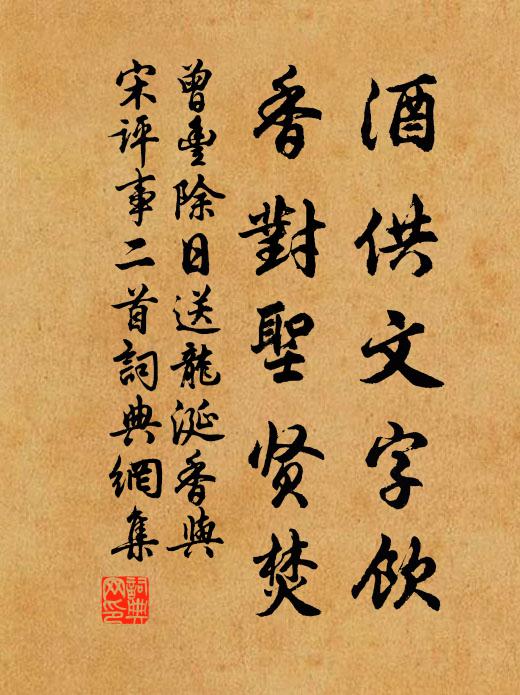 酒供文字飲
香對聖贤焚
曾豊除日送龍涎香與
宋評事二首詞典網集
詞典网印